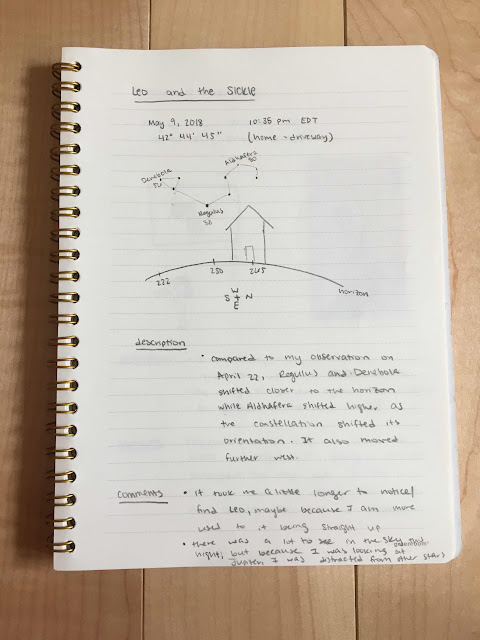 Leo and the Sickle
May 9, 2018 10:35 pm EDT
42° 44' 45" (home - driveway)
Aldhafera
50
Denebola
50
Regulus
222 250 265
horizon
W
S N
E
description
• compared to my observation on
April 22, Regulus and Denebola
shifted closer to the horizon
while Aldhafera shifted higher as
the constellation shifted its
orientation. It also moved
further west.
comments • it took me a little longer to notice/
find Leo, maybe because I am more
used to it being straight up
• there was a lot to see in the sky this
night, but because I was looking at
Jupiter I was distracted from other stars